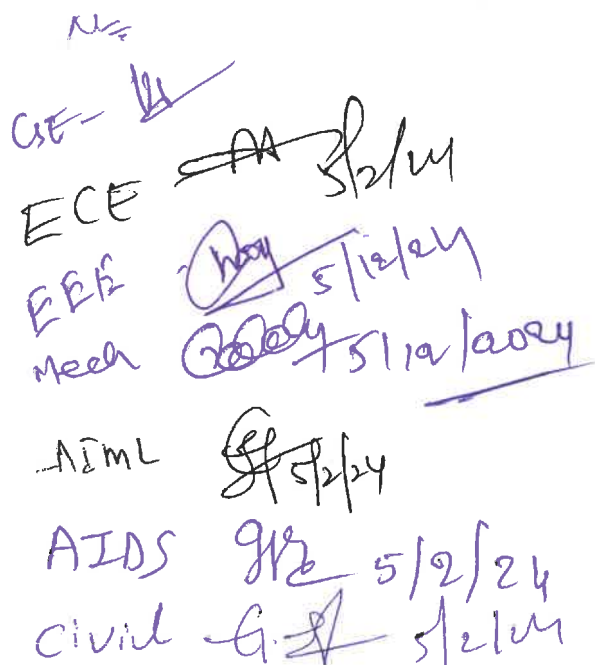 CSE-
ECE 5/2/24
EEE 5/12/24
Mech 5/12/2024
AIML 5/2/24
AIDS 5/2/24
Civil G. 5/2/24